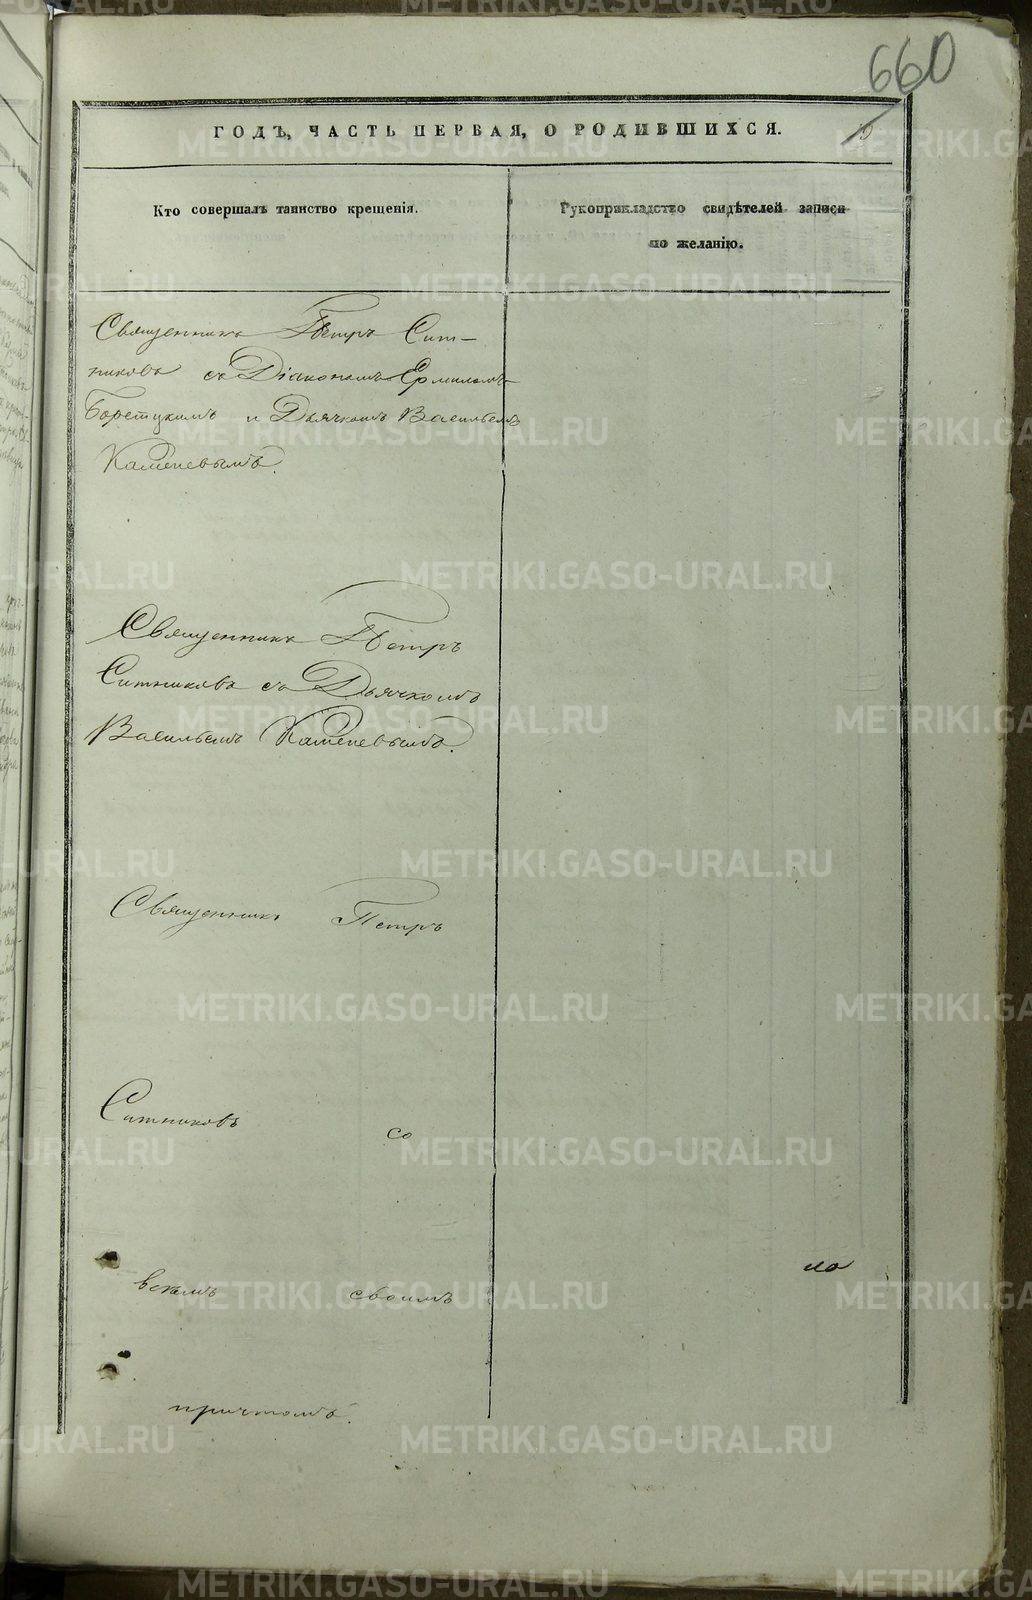 660
ГОДЪ, ЧАСТЬ ПЕРВАЯ, О РОДИВШИХСЯ.
Кто совершалъ таинство крещенія.
Рукоприкладство свидѣтелей записи
по желанію.
Священникъ Петръ Сит-
никовъ съ Діакономъ Ермиломъ
Борецкимъ и Дьячкомъ Васильемъ
Каменевымъ.
Священникъ Петръ
Ситниковъ съ Дьячкомъ
Васильемъ Каменевымъ.
Священникъ Петръ
Ситниковъ со
всѣмъ своимъ
причтомъ.
METRIKI.GASO-URAL.RU